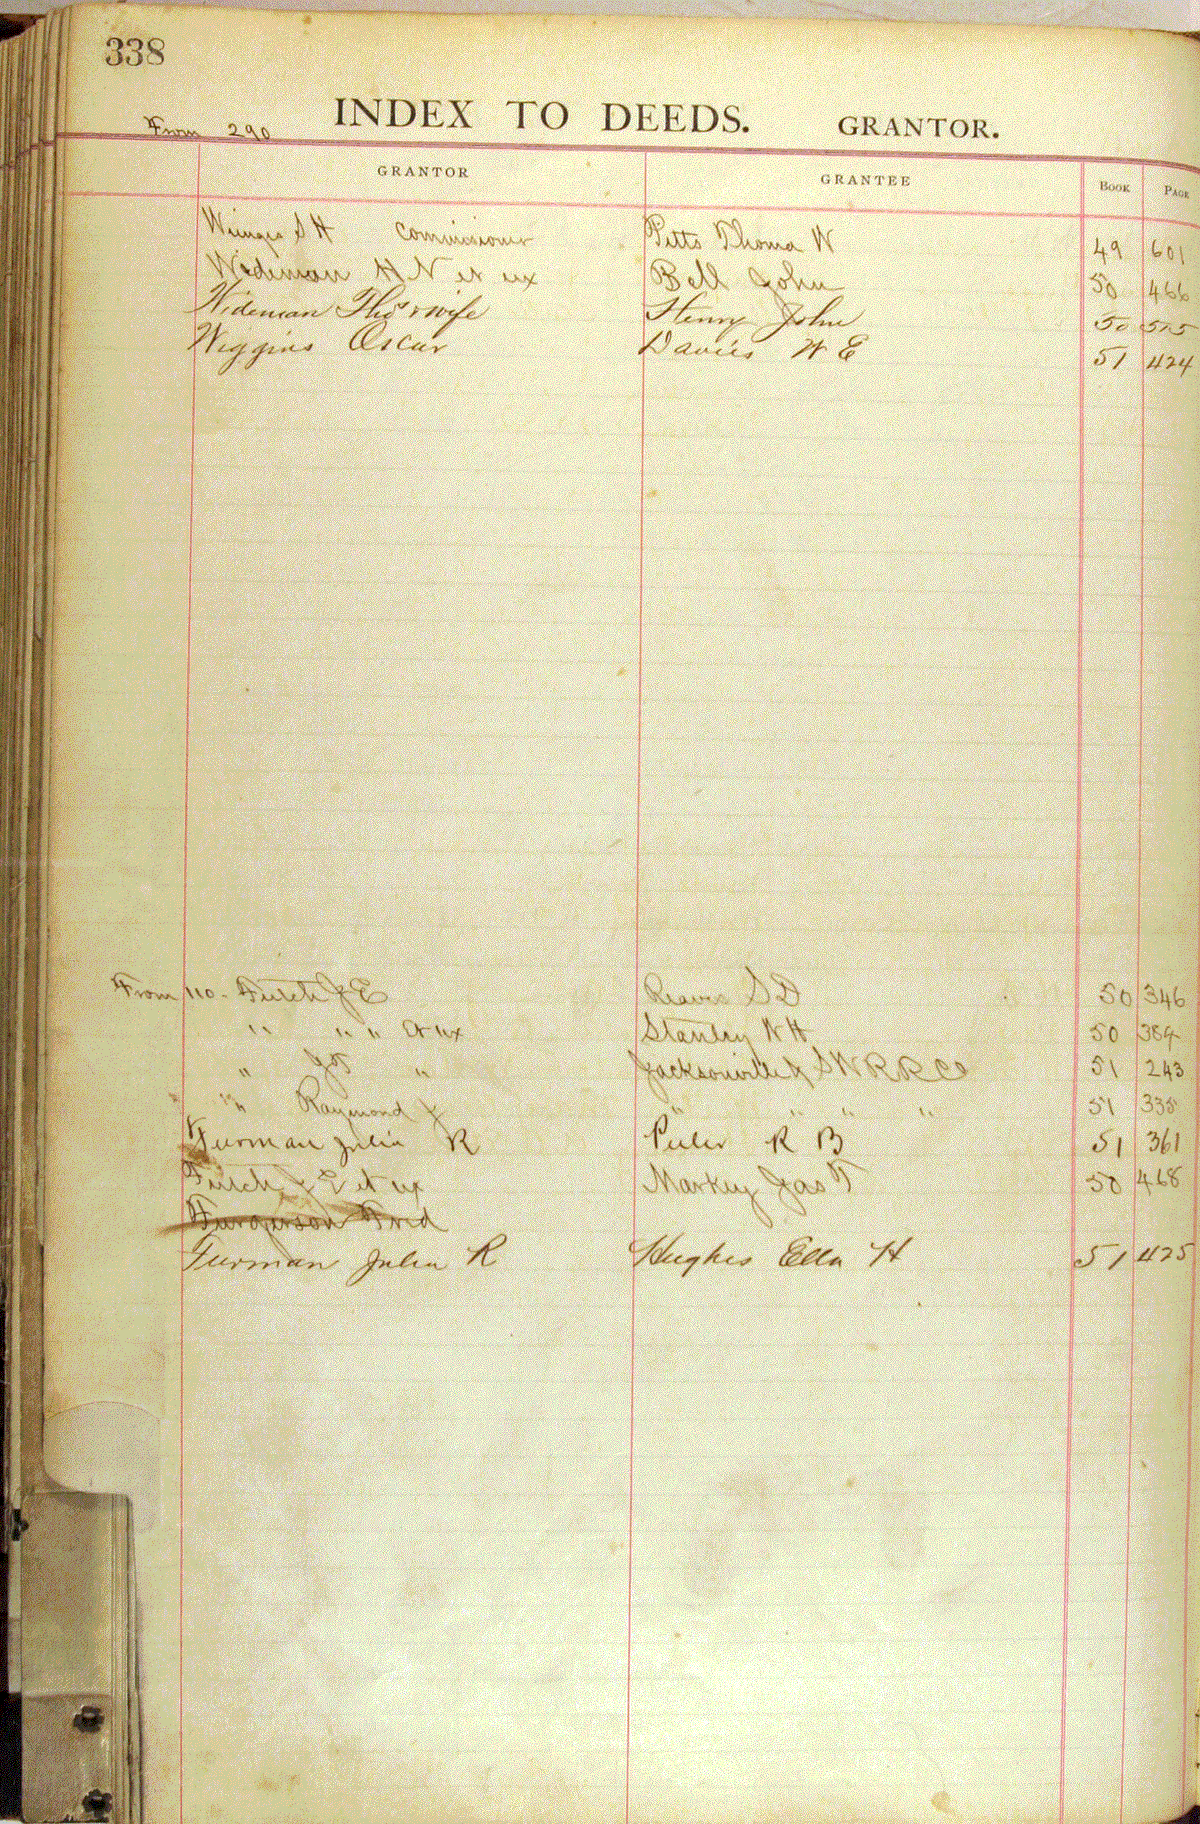 338
INDEX TO DEEDS. GRANTOR.
From 290
GRANTOR GRANTEE BOOK PAGE
S H Commissioner Pitts Thoma W 49 601
Wideman H N et ux Bell John 50 466
Wideman Thos & wife Henry John 50 515
Wiggins Oscar Davies W E 51 424
From 110. Futch J E Reaves S D 50 346
" " " et ux Stanley W H 50 384
" " Jacksonville & S W R R Co 51 243
" " Raymond J " " " " 51 335
Furman Julia R Peeler R B 51 361
Futch J E et ux Markey Jas T 50 468
Furgerson Fred
Furman Julia R Hughes Ella H 51 425